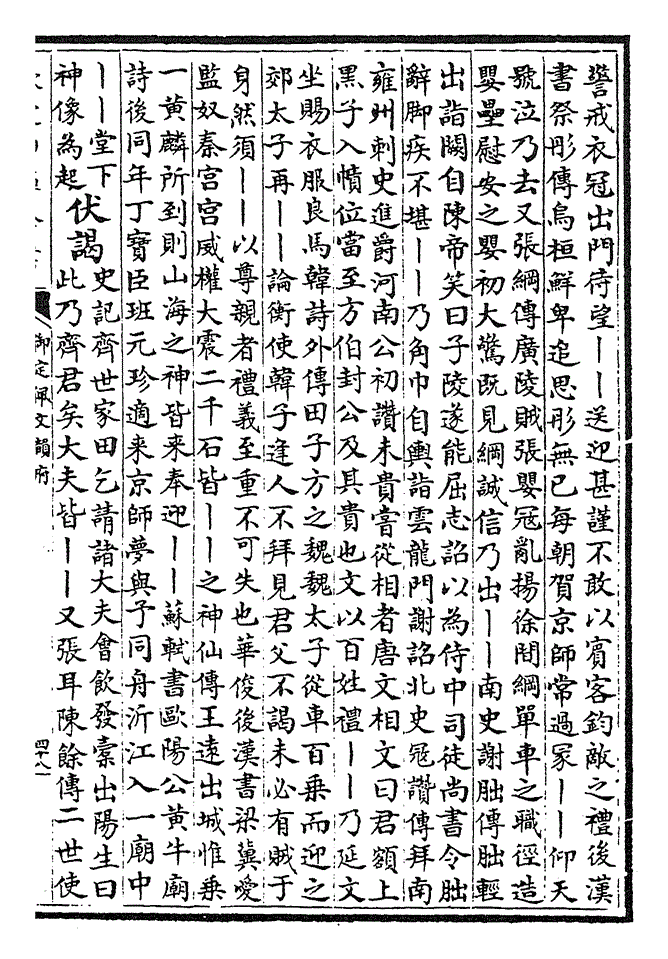 警戒衣冠出門待望丨丨送迎甚謹不敢以賓客鈞敵之禮後漢
書祭肜傳烏桓鮮卑追思肜無已每朝賀京師常過冢丨丨仰天
號泣乃去又張綱傳廣陵賊張嬰冦亂揚徐間綱單車之職徑造
嬰壘慰安之嬰初大驚既見綱誠信乃出丨丨南史謝朏傳朏輕
出詣闕自陳帝笑曰子陵遂能屈志詔以為侍中司徒尚書令朏
辭脚疾不堪丨丨乃角巾自輿詣雲龍門謝詔北史冦讚傳拜南
雍州刺史進爵河南公初讚未貴嘗從相者唐文相文曰君額上
黑子入幘位當至方伯封公及其貴也文以百姓禮丨丨乃延文
坐賜衣服良馬韓詩外傳田子方之魏魏太子從車百乗而迎之
郊太子再丨丨論衡使韓子逢人不拜見君父不謁未必有賊于
身然須丨丨以尊親者禮義至重不可失也華俊後漢書梁冀愛
監奴秦宮宮威權大震二千石皆丨丨之神仙傳王遠出城惟乗
一黃麟所到則山海之神皆来奉迎丨丨蘇軾書歐陽公黃牛廟
詩後同年丁寶臣班元珍適来京師夢與子同舟沂江入一廟中
丨丨堂下
神像為起
伏謁
史記齊世家田乞請諸大夫會飲發橐出陽生曰
此乃齊君矣大夫皆丨丨又張耳陳餘傳二世使
御定佩文韻府